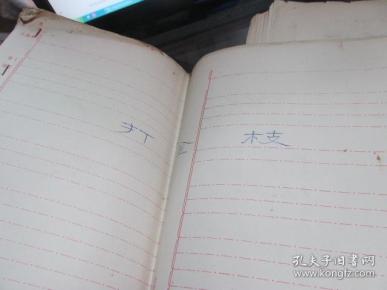 打 枝
孔夫子旧书网
www.kongfz.com